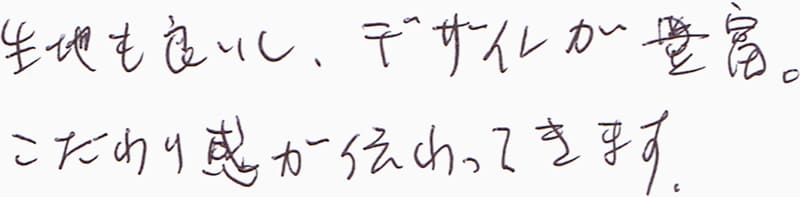 生地も良いし、デザインが豊富。
こだわり感が伝わってきます。